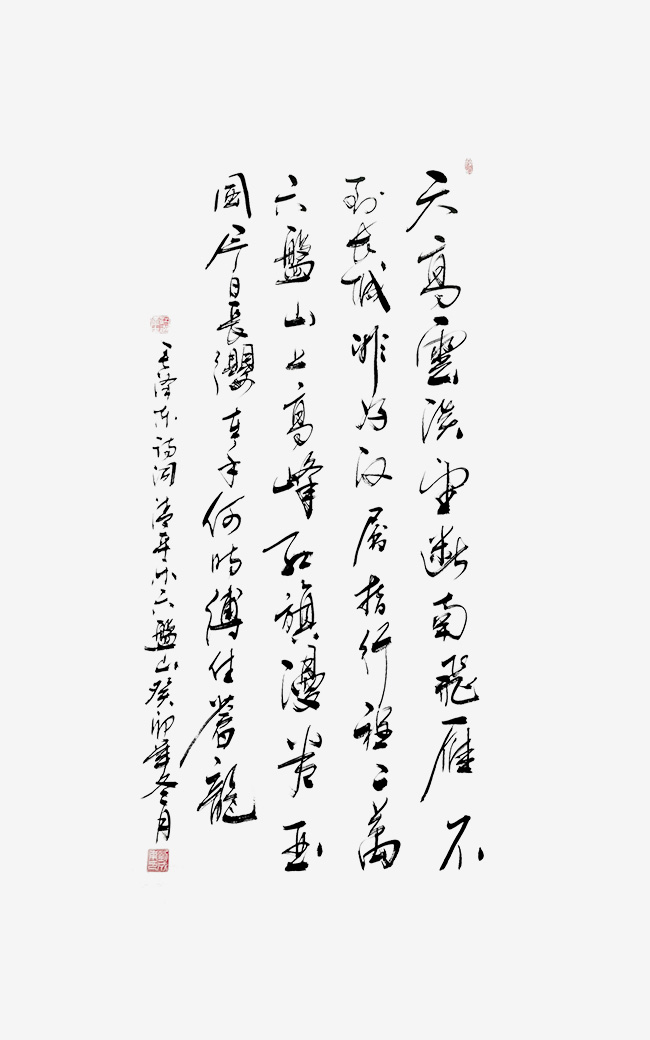 天高雲淡望斷南飛雁不
到長城非好汉屈指行程二萬
六盤山上高峰紅旗漫卷西
風今日長纓在手何時縛住蒼龍
毛泽东诗词清平乐六盤山癸卯年冬月